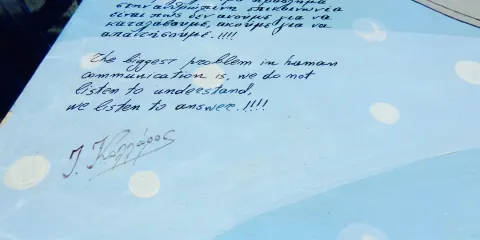 στην ανθρώπινη επικοινωνία
είναι πως δεν ακούμε για να
καταλάβουμε, ακούμε για να
απαντήσουμε.!!!!
The biggest problem in human
communication is, we do not
listen to understand,
we listen to answer.!!!!
Γ. Κολλάρος